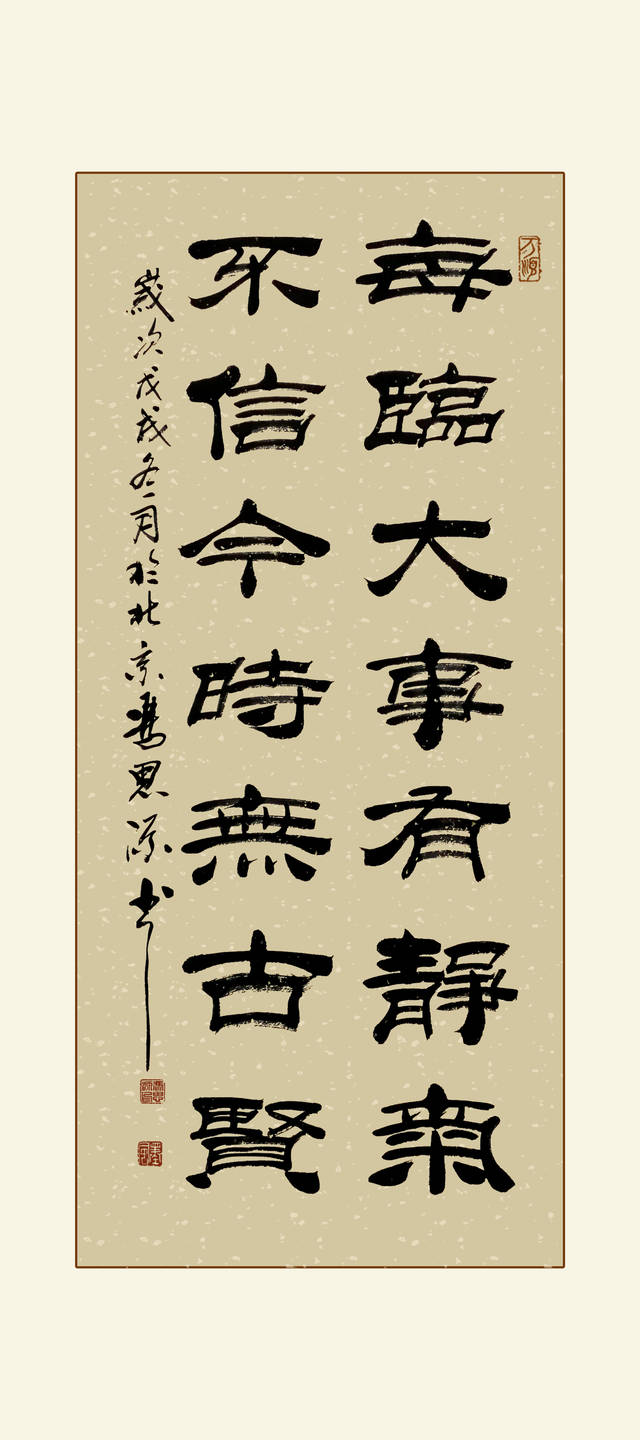 每臨大事有靜氣
不信今時無古賢
歲次戊戌冬月於北京馮思源書